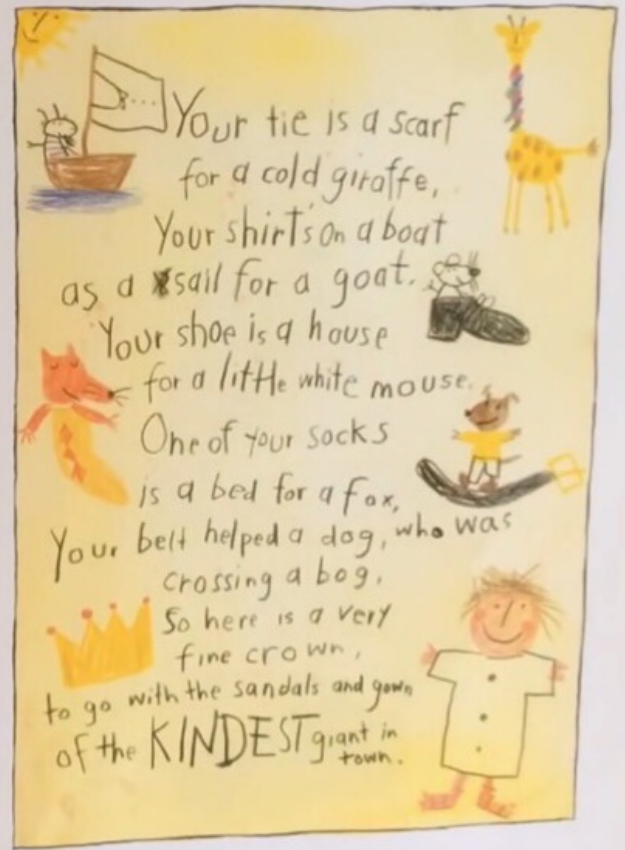 Your tie is a scarf
for a cold giraffe,
Your shirt's on a boat
as a sail for a goat.
Your shoe is a house
for a little white mouse.
One of your socks
is a bed for a fox,
Your belt helped a dog, who was
crossing a bog,
So here is a very
fine crown,
to go with the sandals and gown
of the KINDEST giant in
town.